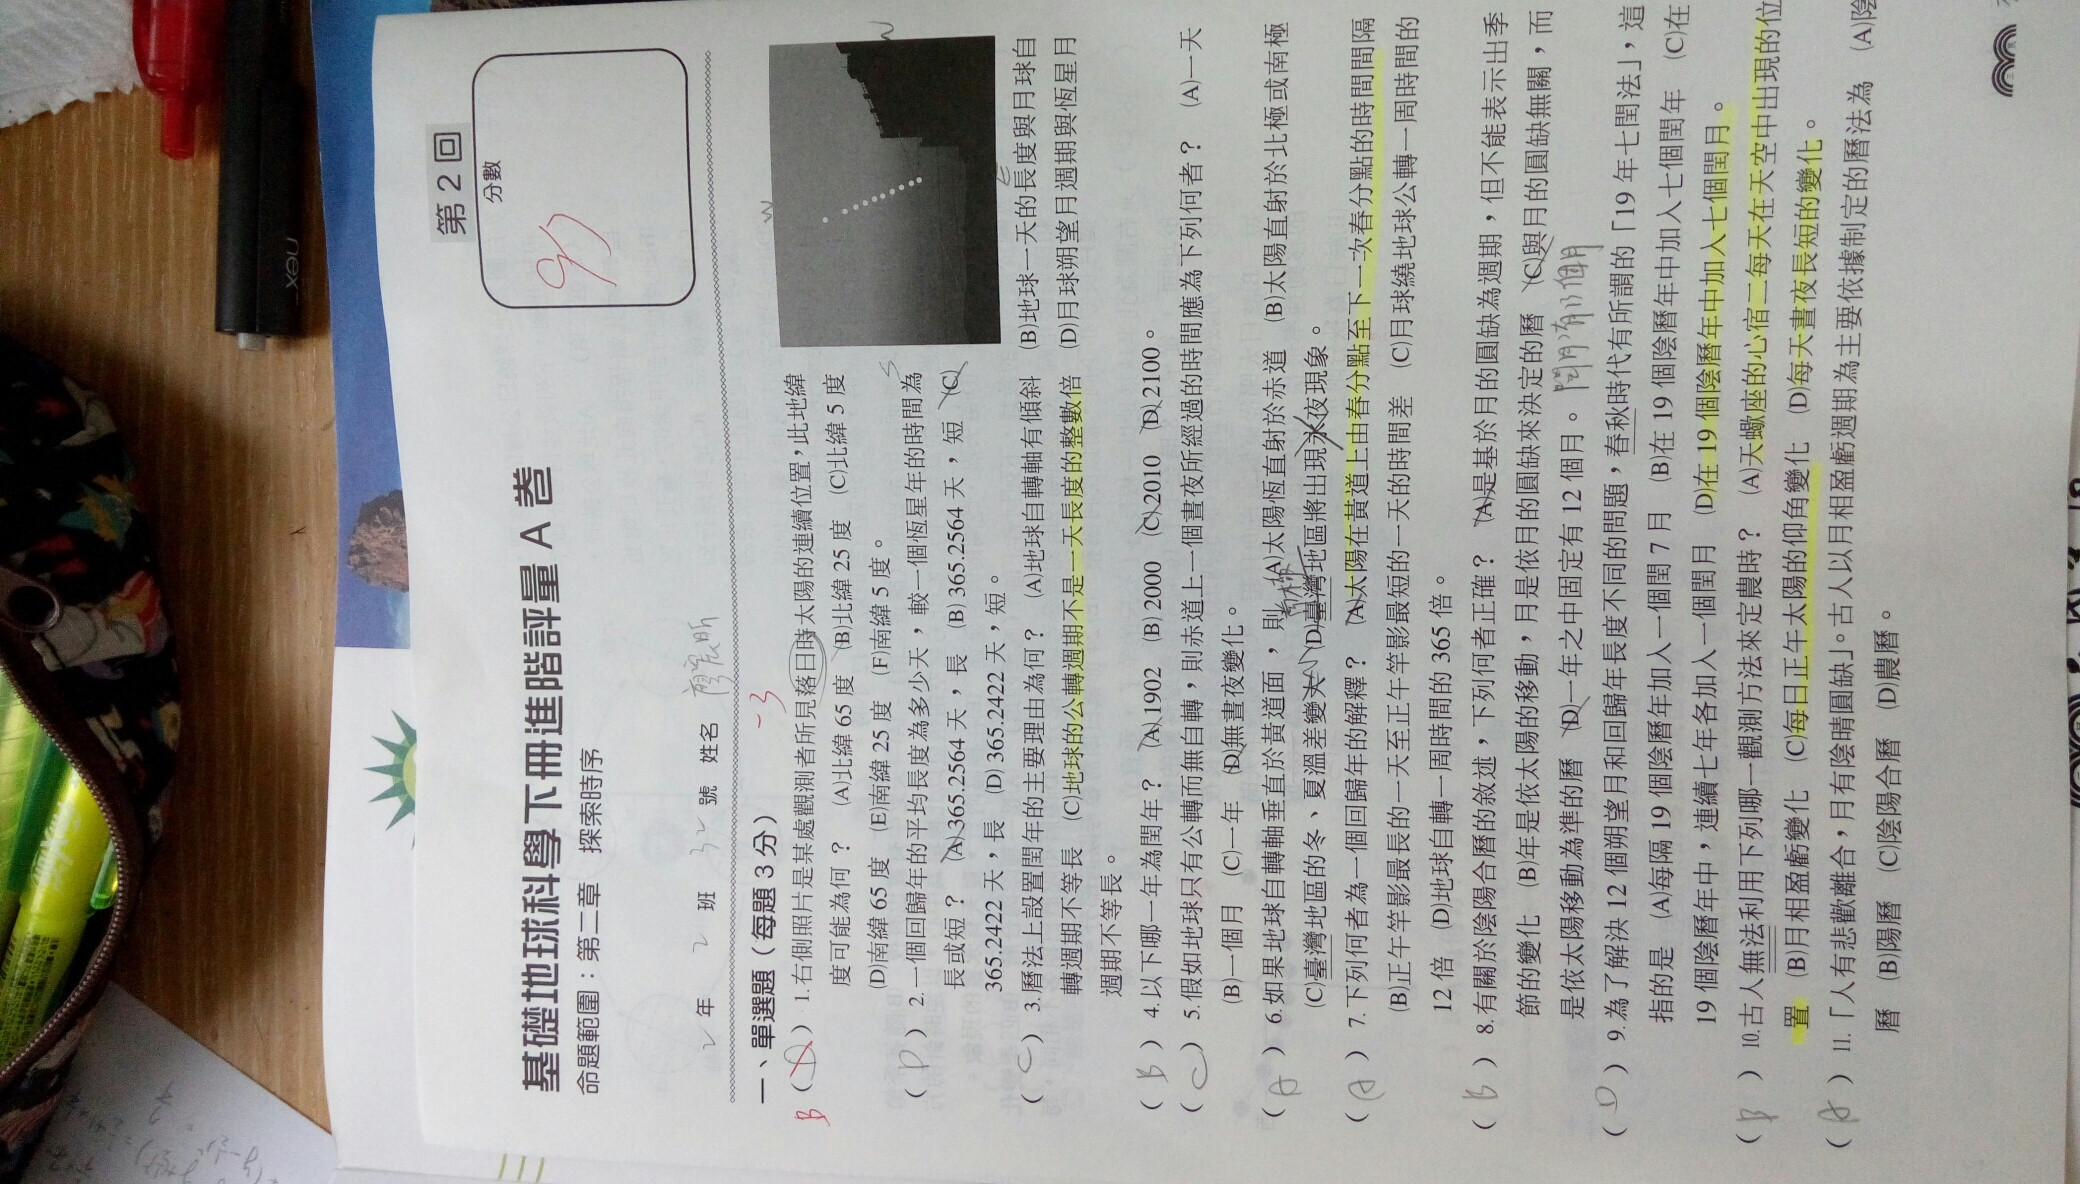 第2回
分數
97
基礎地球科學下冊進階評量 A 卷
命題範圍：第二章 探索時序
2 年 2 班 32 號 姓名
-3
一、單選題（每題 3 分）
B
( D ) 1.右側照片是某處觀測者所見落日時太陽的連續位置，此地緯
度可能為何？ (A)北緯 65 度 (B)北緯 25 度 (C)北緯 5 度
(D)南緯 65 度 (E)南緯 25 度 (F)南緯 5 度。
W
N
E
S
( D ) 2.一個回歸年的平均長度為多少天，較一個恆星年的時間為
長或短？ (A)365.2564 天，長 (B) 365.2564 天，短 (C)
365.2422 天，長 (D) 365.2422 天，短。
( C ) 3.曆法上設置閏年的主要理由為何？ (A)地球自轉軸有傾斜 (B)地球一天的長度與月球自
轉週期不等長 (C)地球的公轉週期不是一天長度的整數倍 (D)月球朔望月週期與恆星月
週期不等長。
( B ) 4.以下哪一年為閏年？ (A)1902 (B)2000 (C)2010 (D)2100。
( C ) 5.假如地球只有公轉而無自轉，則赤道上一個晝夜所經過的時間應為下列何者？ (A)一天
(B)一個月 (C)一年 (D)無晝夜變化。
( A ) 6.如果地球自轉軸垂直於黃道面，則 (A)太陽恆直射於赤道 (B)太陽直射於北極或南極
(C)臺灣地區的冬、夏溫差變大 (D)臺灣地區將出現永夜現象。
( A ) 7.下列何者為一個回歸年的解釋？ (A)太陽在黃道上由春分點至下一次春分點的時間間隔
(B)正午竿影最長的一天至正午竿影最短的一天的時間差 (C)月球繞地球公轉一周時間的
12 倍 (D)地球自轉一周時間的 365 倍。
( B ) 8.有關於陰陽合曆的敘述，下列何者正確？ (A)是基於月的圓缺為週期，但不能表示出季
節的變化 (B)年是依太陽的移動，月是依月的圓缺來決定的曆 (C)與月的圓缺無關，而
是依太陽移動為準的曆 (D)一年之中固定有 12 個月。 閏月有13個月
( D ) 9.為了解決 12 個朔望月和回歸年長度不同的問題，春秋時代有所謂的「19 年七閏法」，這
指的是 (A)每隔 19 個陰曆年加入一個閏 7 月 (B)在 19 個陰曆年中加入七個閏年 (C)在
19 個陰曆年中，連續七年各加入一個閏月 (D)在 19 個陰曆年中加入七個閏月。
( B ) 10.古人無法利用下列哪一觀測方法來定農時？ (A)天蠍座的心宿二每天在天空中出現的位
置 (B)月相盈虧變化 (C)每日正午太陽的仰角變化 (D)每天晝夜長短的變化。
( A ) 11.「人有悲歡離合，月有陰晴圓缺」。古人以月相盈虧週期為主要依據制定的曆法為 (A)陰
曆 (B)陽曆 (C)陰陽合曆 (D)農曆。